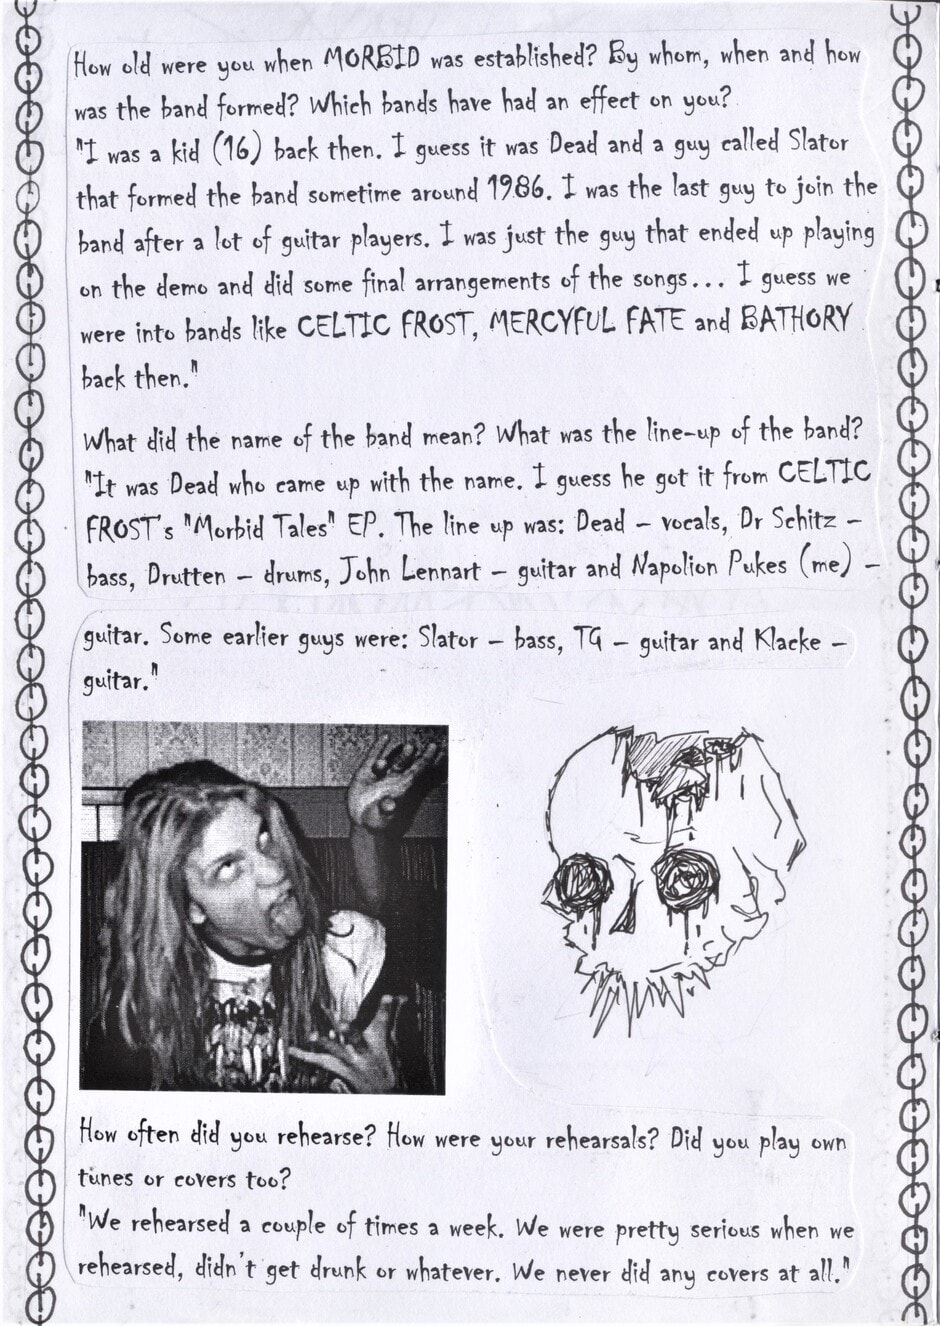 How old were you when MORBID was established? By whom, when and how
was the band formed? Which bands have had an effect on you?
"I was a kid (16) back then. I guess it was Dead and a guy called Slator
that formed the band sometime around 1986. I was the last guy to join the
band after a lot of guitar players. I was just the guy that ended up playing
on the demo and did some final arrangements of the songs... I guess we
were into bands like CELTIC FROST, MERCYFUL FATE and BATHORY
back then."
What did the name of the band mean? What was the line-up of the band?
"It was Dead who came up with the name. I guess he got it from CELTIC
FROST's "Morbid Tales" EP. The line up was: Dead – vocals, Dr Schitz –
bass, Drutten – drums, John Lennart – guitar and Napolion Pukes (me) –
guitar. Some earlier guys were: Slator – bass, TG – guitar and Klacke –
guitar."
How often did you rehearse? How were your rehearsals? Did you play own
tunes or covers too?
"We rehearsed a couple of times a week. We were pretty serious when we
rehearsed, didn't get drunk or whatever. We never did any covers at all."